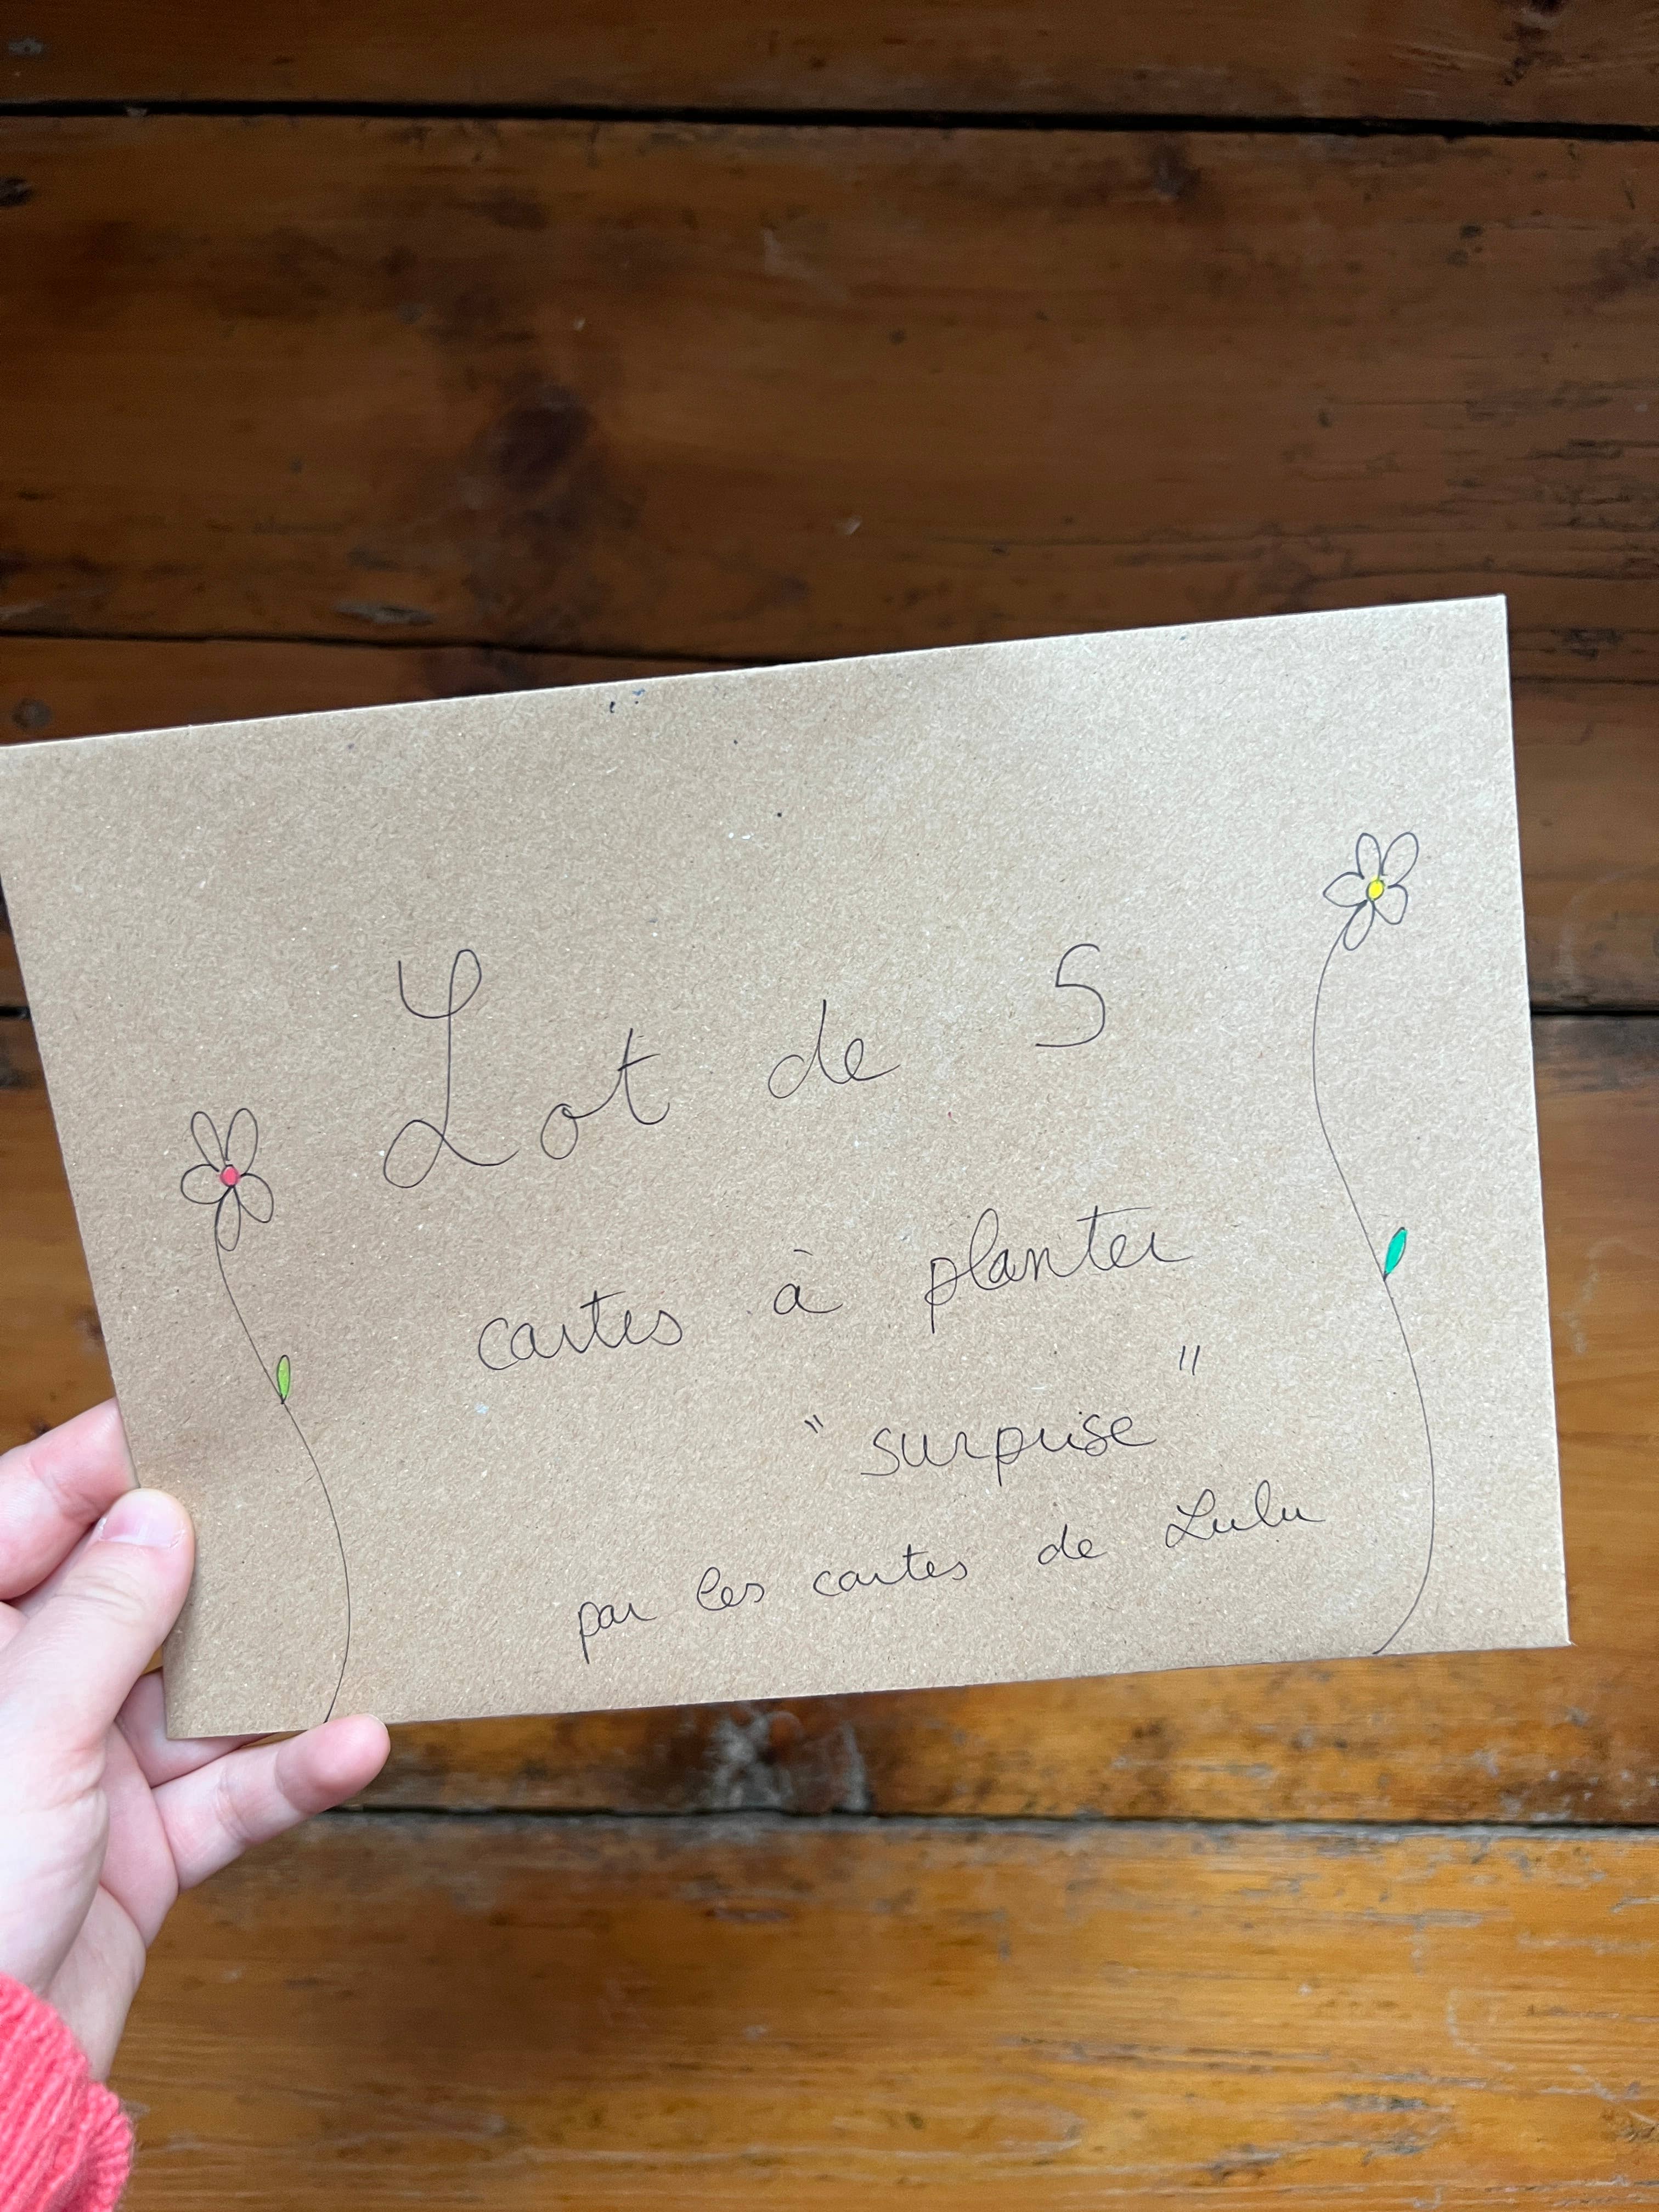 Lot de 5
cartes à planter
"surprise"
par les cartes de Lulu